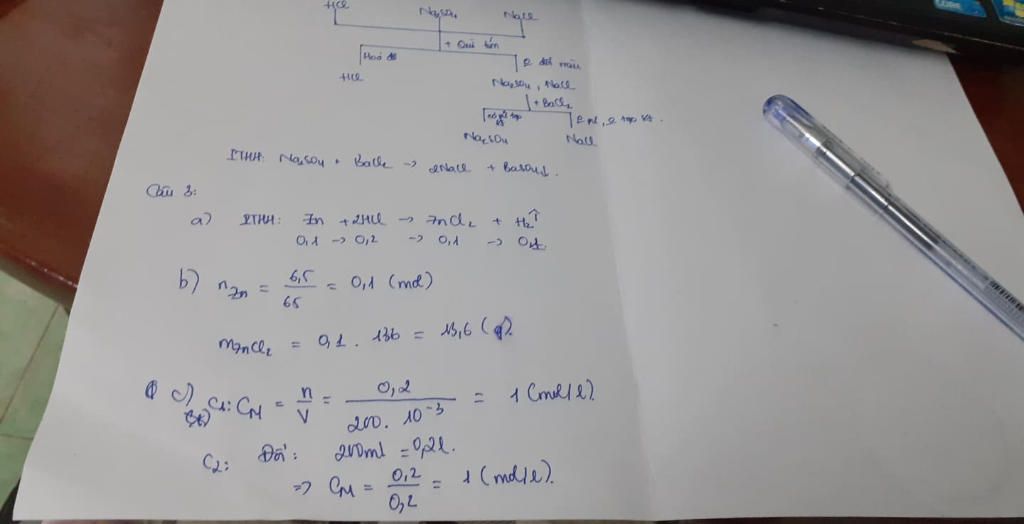 HCl Na₂SO₄ NaCl
+ Quì tím
Hoá đỏ
HCl
Na₂SO₄, NaCl
+ BaCl₂
Na₂SO₄ NaCl
PTHH: Na₂SO₄ + BaCl₂ → 2NaCl + BaSO₄↓.
Câu 3:
a) PTHH: Zn + 2HCl → ZnCl₂ + H₂↑
0,1 → 0,2 → 0,1 → 0,1
b) nZn = 6,5/65 = 0,1 (mol)
mZnCl₂ = 0,1 . 136 = 13,6 (g).
c) C₁: CM = n/V = 0,2/200.10⁻³ = 1 (mol/l).
C₂: Đổi: 200ml = 0,2l.
=> CM = 0,2/0,2 = 1 (mol/l).